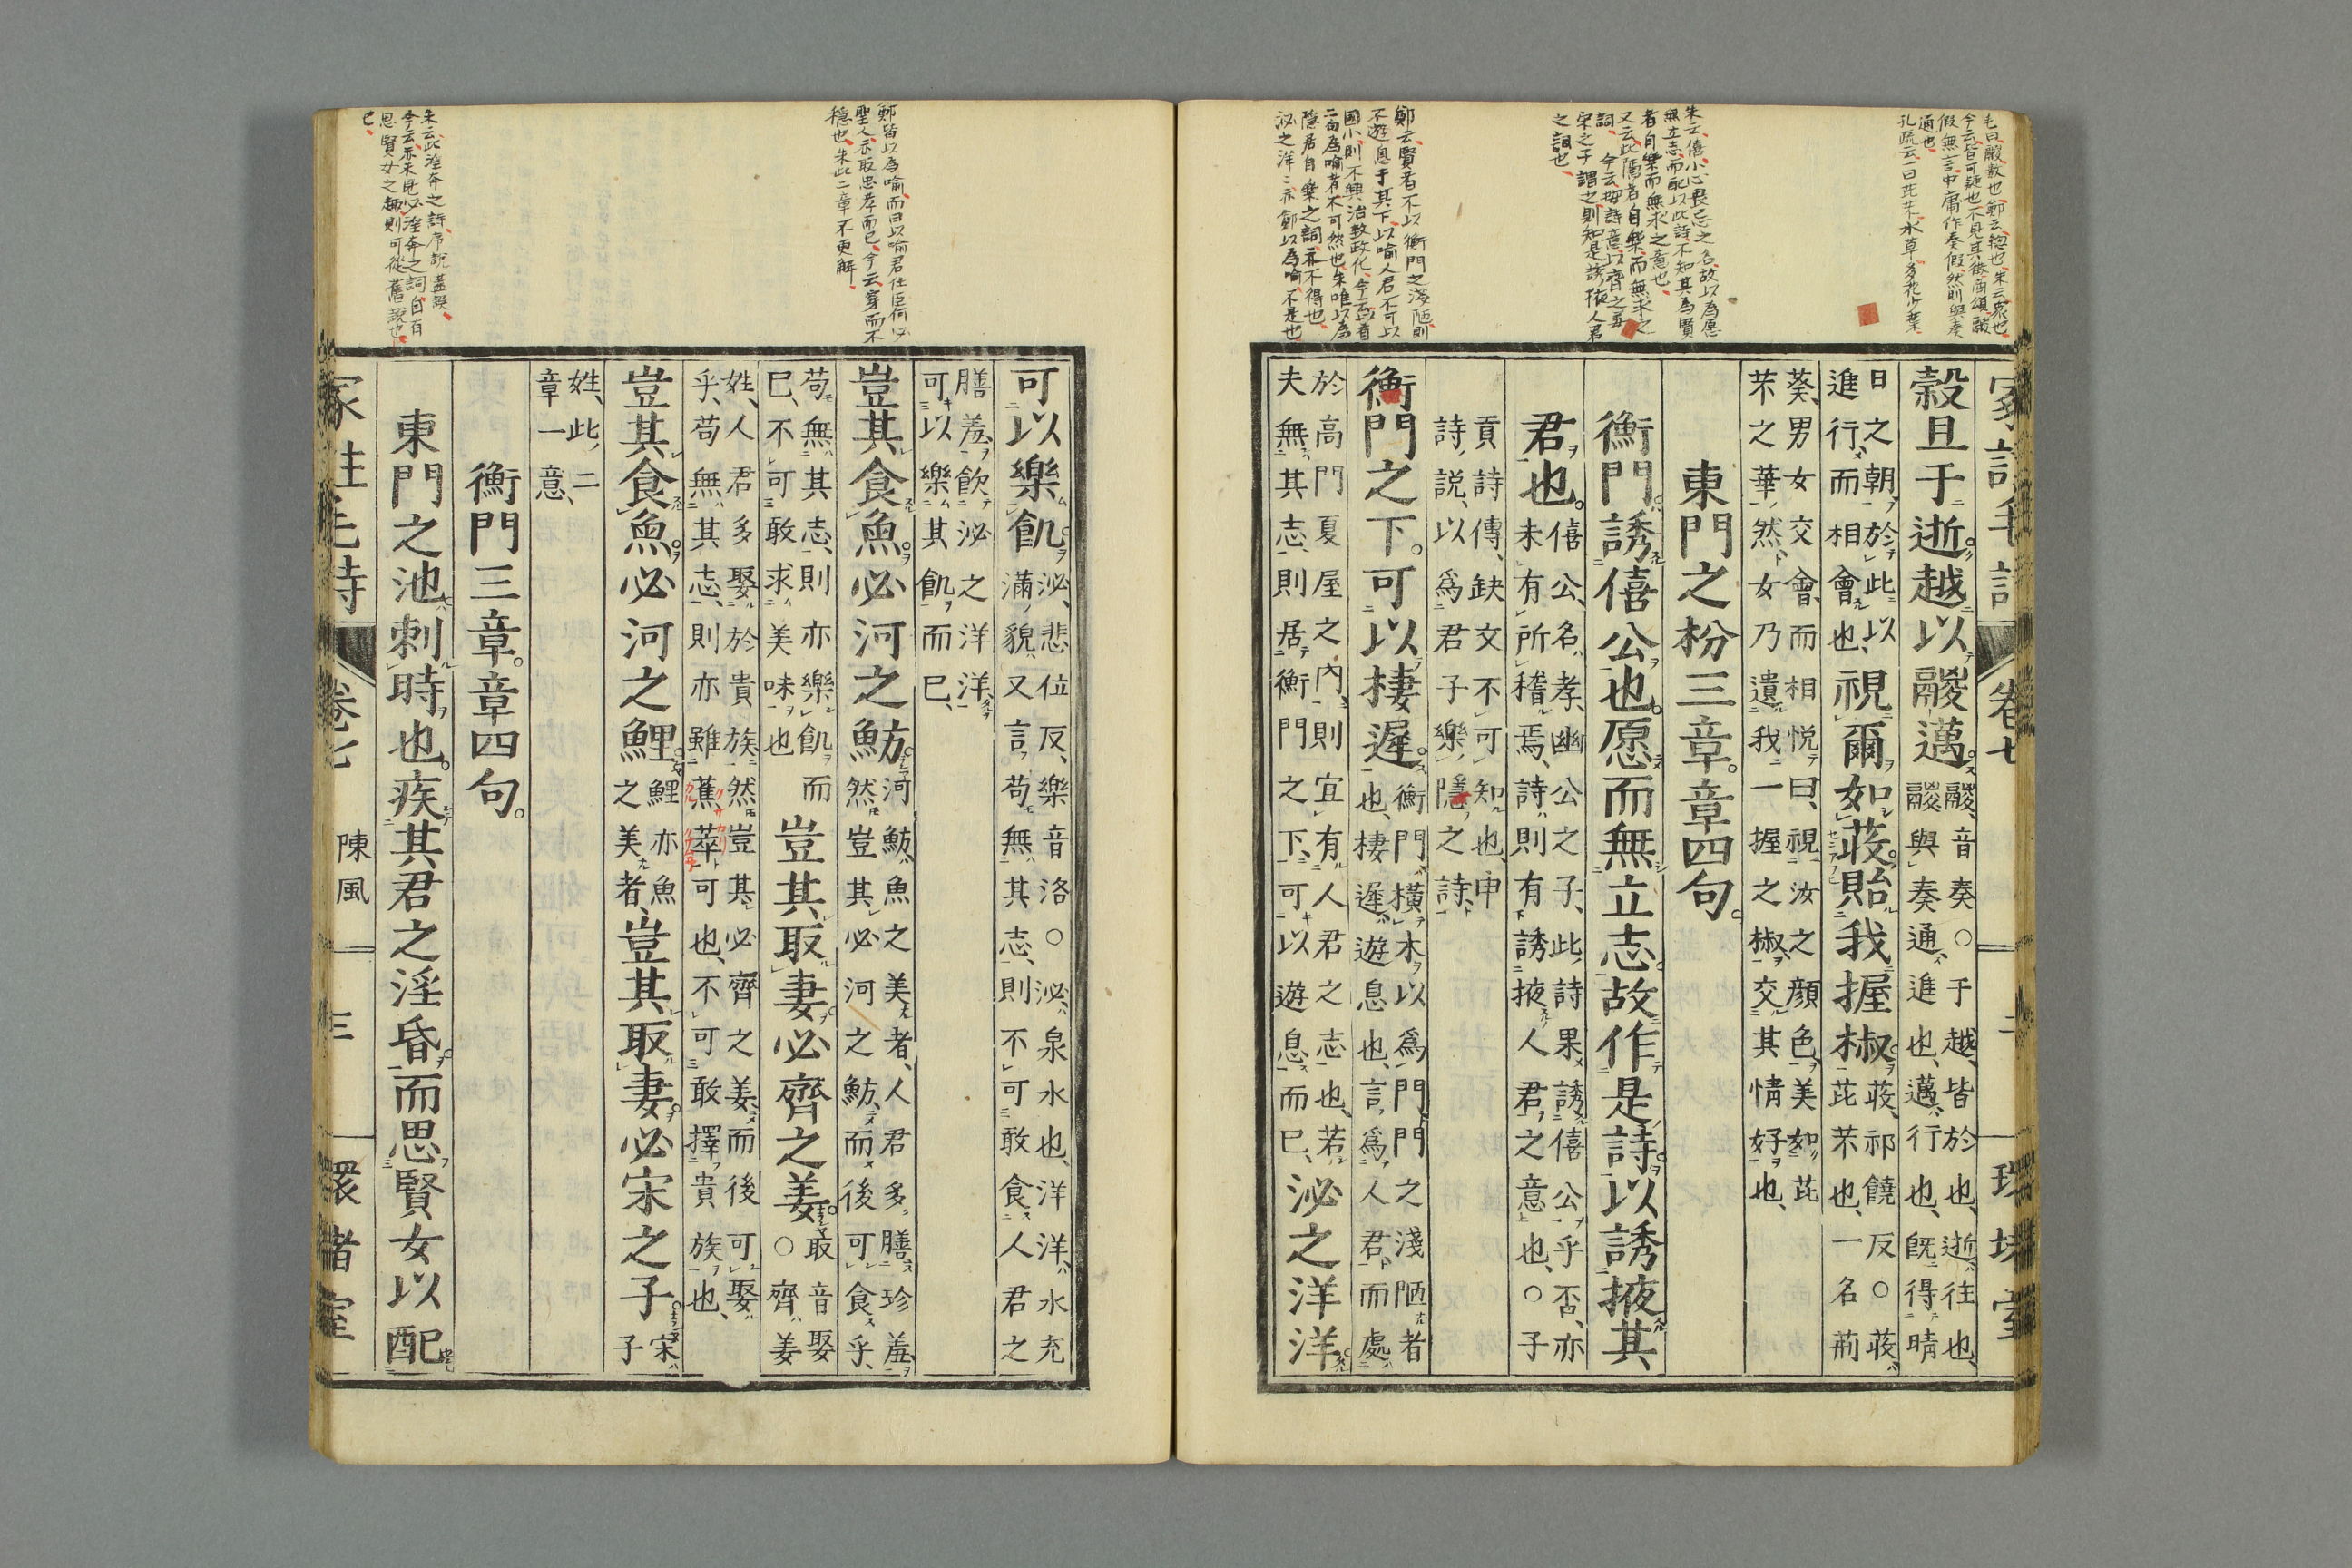 冢註毛詩 卷七 二 環堵室
穀旦于逝越以鬷邁鬷音奏○于越皆於也逝往也
鬷與奏通進也邁行也既得晴
日之朝於此以
進行而相會也視爾如荍貽我握椒荍祁饒反○荍
芘芣也一名荊
葵男女交會而相悦曰視汝之顔色美如芘
芣之華然女乃遺我一握之椒交其情好也
東門之枌三章章四句
衡門誘僖公也愿而無立志故作是詩以誘掖其
君也僖公名孝幽公之子此詩果誘僖公乎否亦
未有所稽焉詩則有誘掖人君之意也○子
貢詩傳缺文不可知也申
詩説以爲君子樂隱之詩
衡門之下可以棲遲衡門橫木以爲門門之淺陋者
也棲遲遊息也言爲人君而處
於高門夏屋之內則宜有人君之志也若
夫無其志則居衡門之下可以遊息而已泌之洋洋
可以樂飢泌悲位反樂音洛○泌泉水也洋洋水充
滿貌又言苟無其志則不可敢食人君之
膳羞飲泌之洋洋
可以樂其飢而已
豈其食魚必河之魴河魴魚之美者人君多膳珍羞
然豈其必河之魴而後可食乎
苟無其志則亦樂飢而
已不可敢求美味也豈其取妻必齊之姜取音娶
○齊姜
姓人君多娶於貴族然豈其必齊之姜而後可娶
乎苟無其志則亦雖蕉萃可也不可敢擇貴族也
豈其食魚必河之鯉鯉亦魚
之美者豈其取妻必宋之子宋
子
姓此二
章一意
衡門三章章四句
東門之池刺時也疾其君之淫昏而思賢女以配
冢註毛詩 卷七 陳風 三 環堵室
孔疏云一曰芘芣水草多花少葉
朱云僖小心畏忌之名故以為愿
無立志而配以此詩不知其為賢
者自樂而無求之意也
又云此隱者自樂而無求之
詞
之詞也
鄭云賢者不以衡門之淺陋則
不遊息于其下以喻人君不可以
國小則不興治教政化
隱居自樂之詞
泌之洋〻亦鄭以為喻不是也
鄭皆以為喻而曰以喻君任臣何必
聖人亦取忠孝而已今云穿而不
穩也朱此二章不更解
朱云此淫奔之詩序説蓋誤
今云亦未見必淫奔之詞自有
思賢女之趣則可從舊説也
已